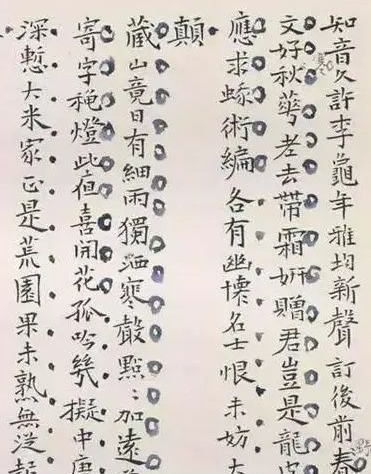 知音久許李龜年雅均新聲訂後前春
文好秋蕐老去帶霜妍贈君豈是龍
應求蛾術編各有幽懷名士恨未妨大
顛
藏山竟日有細雨獨寒聲點〻加遠
寄字穐燈此夜喜開花孤吟幾擬中唐
深慙大米家正是荒園果未熟無從